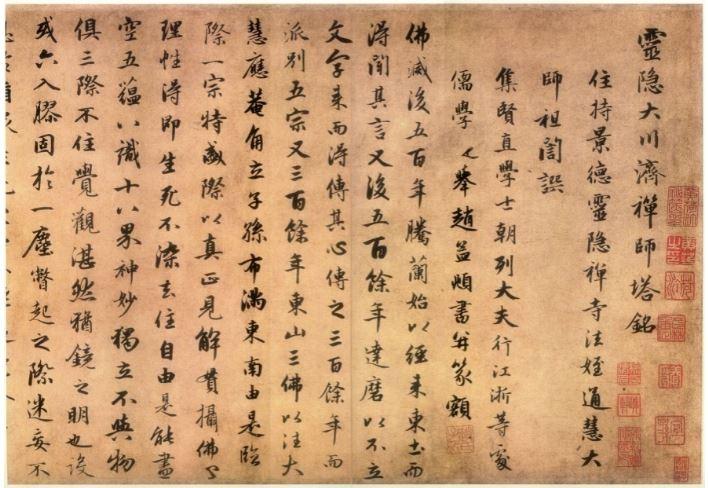 靈隐大川濟禪師塔銘
住持景德靈隐禪寺法姪通慧大
師祖誾譔
集賢直學士朝列大夫行江浙等處
儒學〻舉趙孟頫書并篆額
佛滅後五百年騰蘭始以經来東土而
得聞其言又後五百餘年達磨以不立
文字来而得傳其心傳之三百餘年而
派别五宗又三百餘年東山三佛以法大
慧應菴角立子孫布滿東南由是臨
際一宗特盛際以真正見解貫攝佛〻
理性得即生死不染去住自由是能盡
空五藴八識十八界神妙獨立不與物
俱三際不住覺觀湛然猶鏡之明也設
或六入膠固於一塵瞥起之際迷妄不